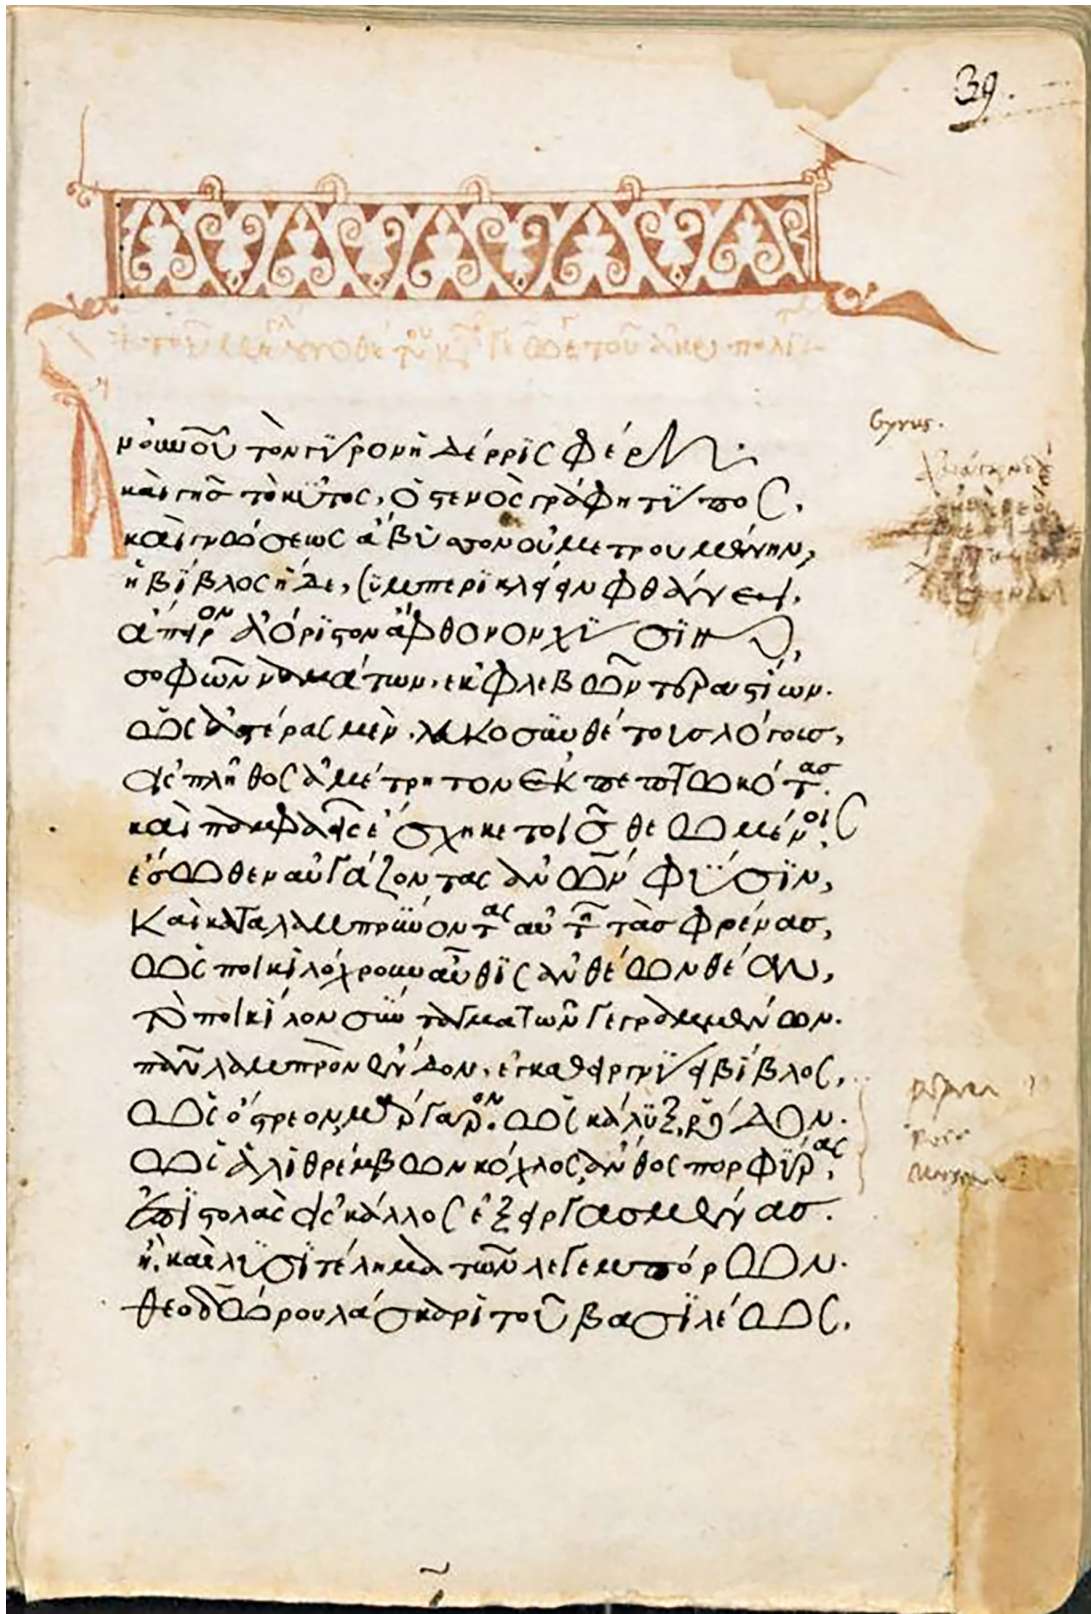 39.
Ἀν οὐνοῦ τὸν γῦρον ἡ δέρρις φέρει.
καὶ γῆς τὸ κύτος, ὁ στενὸς γράφῃ τύπος,
καὶ γνώσεως ἄβυσσον οὐ μετρουμένην,
ἡ βίβλος ἥδε, συμπερικλείειν φθάνει,
ἄπειρον ἀόριστον ἄφθονον χύσιν,
σοφῶν νοημάτων. ἐκ φλεβῶν τεραστίων.
ὡς ἀστέρας μὲν. λακοσυνθέτοις λόγοις,
εἰς πλῆθος ἀμέτρητον ἐκπεπτωκότας.
καὶ παμφαεῖς ἔσχηκε τοῖς θεωμένοις,
ἔσωθεν αὐγάζοντας ἀνῶν φύσιν,
Καὶ καταλαμπρύνοντας αὐτῶν τὰς φρένας,
ὡς ποικιλόχρουν αὖθις ἀνθέων θέαν,
τὸ ποικίλον συνταγμάτων γεγραμμένων.
πανλαμπρον ἔνδον. εἰσκαθείργνυ ἡ βίβλος,
ὡς ὄστρεον, μάργαρον. ὡς κάλυξ, ῥόδον.
ὡς ἁλιθρέμβων κόχλος, ἄνθος πορφύρας,
ἐπιστολὰς εἰς κάλλος ἐξειργασμένας.
ἣ, καὶ λυσιτέλημα τῶν λεγεμπόρων.
θεοδώρου λάσκαρι τοῦ βασιλέως.
Gyrus.